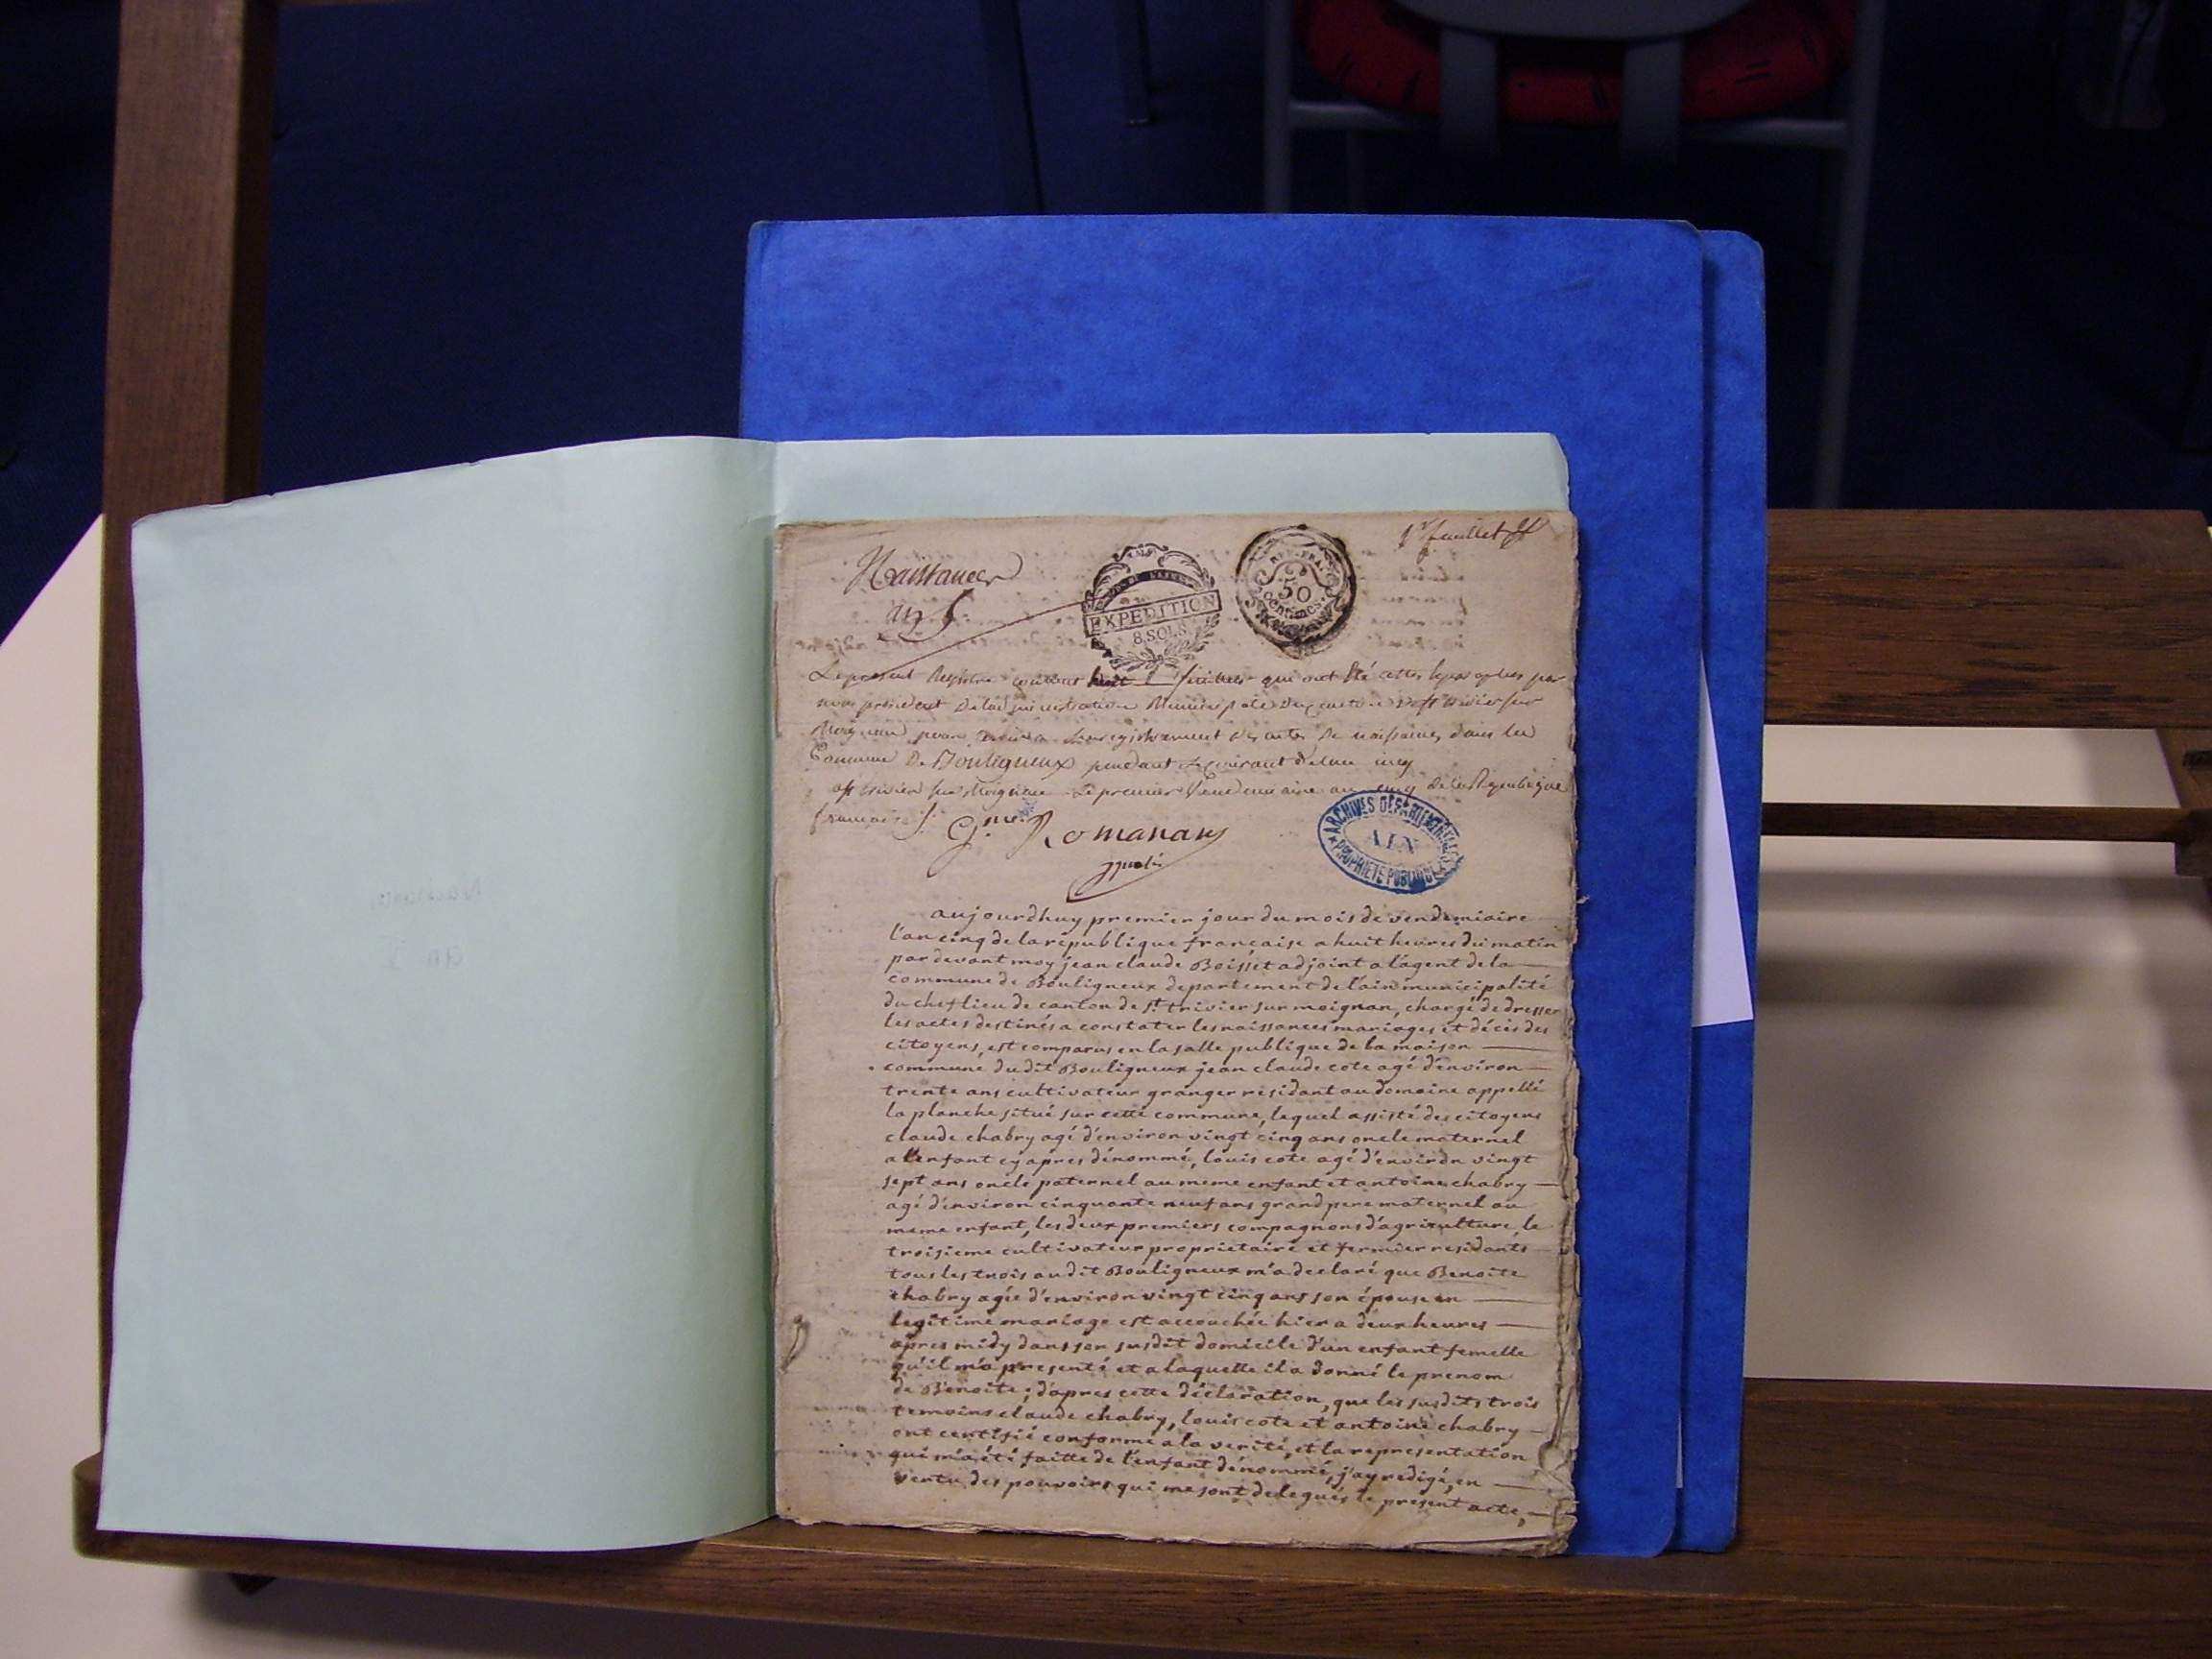 1r feuillet
Naissances
an 5
EXPEDITION
8.SOLS
REP. FRA.
50
centimes
Le present Registre contient huit feuillets qui ont été cottés
nous president de l'administration Municipale du canton de st trivier sur
Moignan pour servir a l'enregistrement des actes de naissances dans la
Commune De Bouligneux pendant le courant de l'an cinq
a st trivier sur Moignan le premier Vendemiaire an cinq de la Republique
francaise
Romanans
ARCHIVES DÉPARTEMENTALES
AIN
PROPRIÉTÉ PUBLIQUE
aujourdhuy premier jour du mois de vendemiaire
l'an cinq de la republique francaise a huit heures du matin
par devant moy jean claude Boisset adjoint a l'agent de la
commune de Bouligneux departement de l'ain municipalité
du chef lieu de canton de st. trivier sur moignan, chargé de dresser
les actes destinés a constater les naissances mariages et décès des
citoyens, est comparus en la salle publique de la maison
commune du dit Bouligneux jean claude cote agé d'environ
trente ans cultivateur granger residant au domaine appellé
la planche situé sur cette commune, lequel assisté des citoyens
claude chabry agé d'environ vingt cinq ans oncle maternel
a l'enfant cy apres dénommé, louis cote agé d'environ vingt
sept ans oncle paternel au meme enfant et antoine chabry
agé d'environ cinquante neuf ans grand pere maternel au
meme enfant, les deux premiers compagnons d'agriculture, le
troisieme cultivateur proprietaire et fermier residants
tous les trois au dit Bouligneux m'a declaré que Benoite
chabry agée d'environ vingt cinq ans son épouse en
legitime mariage est accouchée hier a deux heures
apres midy dans son susdit domicile d'un enfant femelle
qu'il m'a presenté et a laquelle il a donné le prenom
de Benoite; d'apres cette déclaration, que les susdits trois
temoins claude chabry, louis cote et antoine chabry
ont certifié conforme a la verité, et la representation
qui m'a été faitte de l'enfant dénommé, j'ay redigé, en
vertu des pouvoirs qui me sont delegués le present acte,